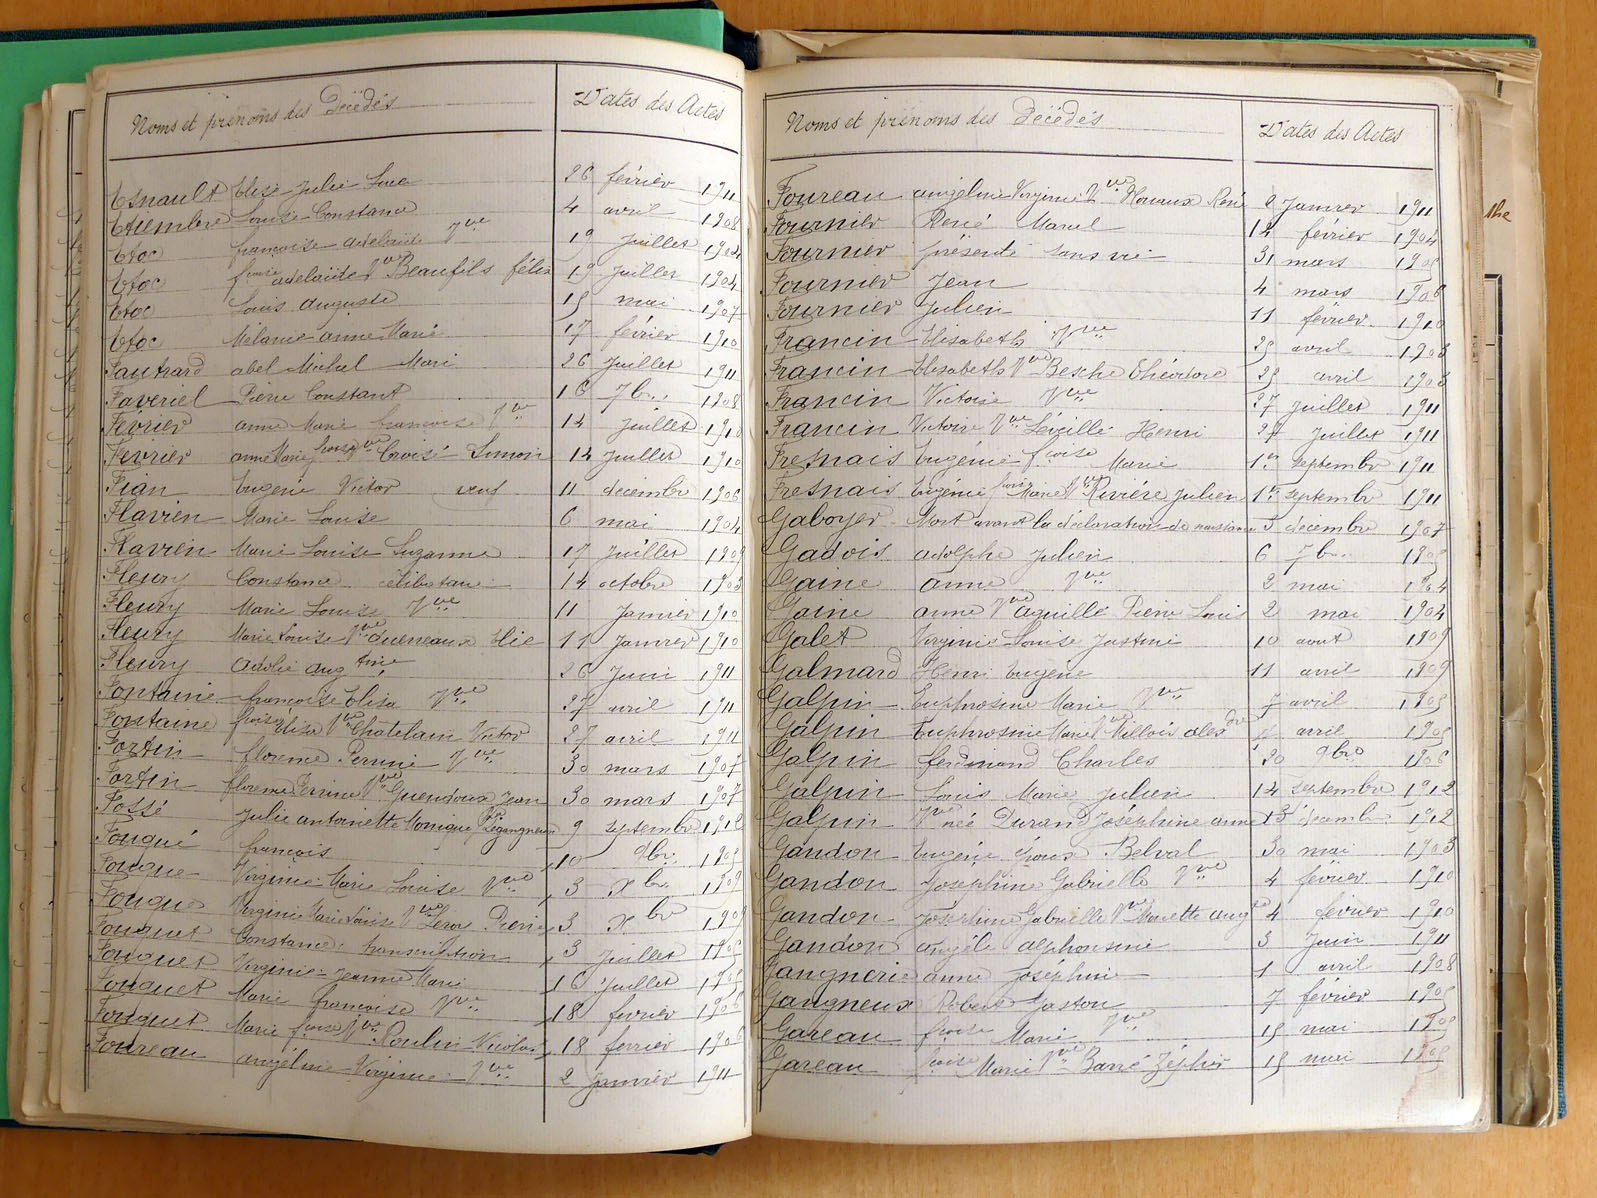 Noms et prénoms des Décédés Dates des Actes
Esnault Elise Julie 26 février 1911
Etiembre Louise Constance 4 avril 1908
Etoc françoise adelaïde Vve 19 Juillet 1904
Etoc fçoise adelaïde Vve Beaufils félix 19 Juillet 1904
Etoc Louis auguste 15 mai 1907
Etoc Mélanie anne Marie 17 février 1910
Fautrard abel Michel Marie 26 Juillet 1911
Faveriel Pierre Constant 16 7bre 1908
Février anne Marie françoise Vve 14 Juillet 1910
Février anne Marie fçoise Vve Croisé Simon 14 Juillet 1910
Fian Eugène Victor veuf 11 décembre 1906
Flavien Marie Louise 6 mai 1904
Flavien Marie Louise Suzanne 17 Juillet 1909
Fleury Constance célibataire 14 octobre 1903
Fleury Marie Louise Vve 11 Janvier 1910
Fleury Marie Louise Vve Elie 11 Janvier 1910
Fleury augtine 26 Juin 1911
Fontaine françoise Elisa Vve 27 avril 1911
Fontaine fçoise Elisa Vve Chatelain Victor 27 avril 1911
Fortin florence Perrine Vve 30 mars 1907
Fortin florence Perrine Vve Guendoux Jean 30 mars 1907
Fossé Julie antoinette Monique 9 septembre 1912
Fouqué françois 10 9bre 1905
Fouque Virginie Marie Louise Vve 3 Xbre 1909
Fouque Virginie Marie Louise Vve Leroy Pierre 3 Xbre 1909
Fouquet Constance transcription 3 Juillet 1905
Fouquet Virginie Jeanne Marie 16 Juillet 1905
Fouquet Marie françoise Vve 18 fevrier 1906
Fouquet Marie fçoise Vve Poulin Nicolas 18 fevrier 1906
Foureau angéline Virginie Vve 2 Janvier 1911
Noms et prénoms des Décédés Dates des Actes
Foureau angéline Virginie Vve René 2 Janvier 1911
Fournier René Marcel 14 fevrier 1904
Fournier présenté sans vie 31 mars 1905
Fournier Jean 4 mars 1906
Fournier Julien 11 février 1910
Francin Elisabeth Vve 25 avril 1903
Francin Elisabeth Vve Besche théodore 25 avril 1903
Francin Victoire Vve 27 Juillet 1911
Francin Victoire Vve Léveillé Henri 27 Juillet 1911
Fresnais Eugénie fçoise Marie 1er septembre 1911
Fresnais Eugénie fçoise Marie Vve Rivière Julien 1er septembre 1911
Gaboyer Mort avant la déclaration de naissance 3 décembre 1907
Gadois adolphe Julien 6 7bre 1905
Gaine anne Vve 2 mai 1904
Gaine anne Vve aguillé Pierre Louis 2 mai 1904
Galet Virginie Louise Justine 10 aout 1909
Galmard Henri Eugène 11 avril 1909
Galpin Euphrosine Marie Vve 7 avril 1905
Galpin Euphrosine Marie Vve alexdre avril 1905
Galpin ferdinand Charles 20 9bre 1906
Galpin Louis Marie Julien 14 septembre 1912
Galpin Vve née Durand Joséphine anne 13 décembre 1912
Gandon Eugénie épouse Belval 30 mai 1903
Gandon Joséphine Gabrielle Vve 4 février 1910
Gandon Joséphine Gabrielle Vve augte 4 fevrier 1910
Gandon angèle alphonsine 3 Juin 1911
Gangnerie anne Joséphine 1 avril 1908
Gangneux Robert Gaston 7 février 1905
Gareau fçoise Marie Vve 15 mai 1905
Gareau fçoise Marie Vve Barré Zéphir 15 mai 1905
the